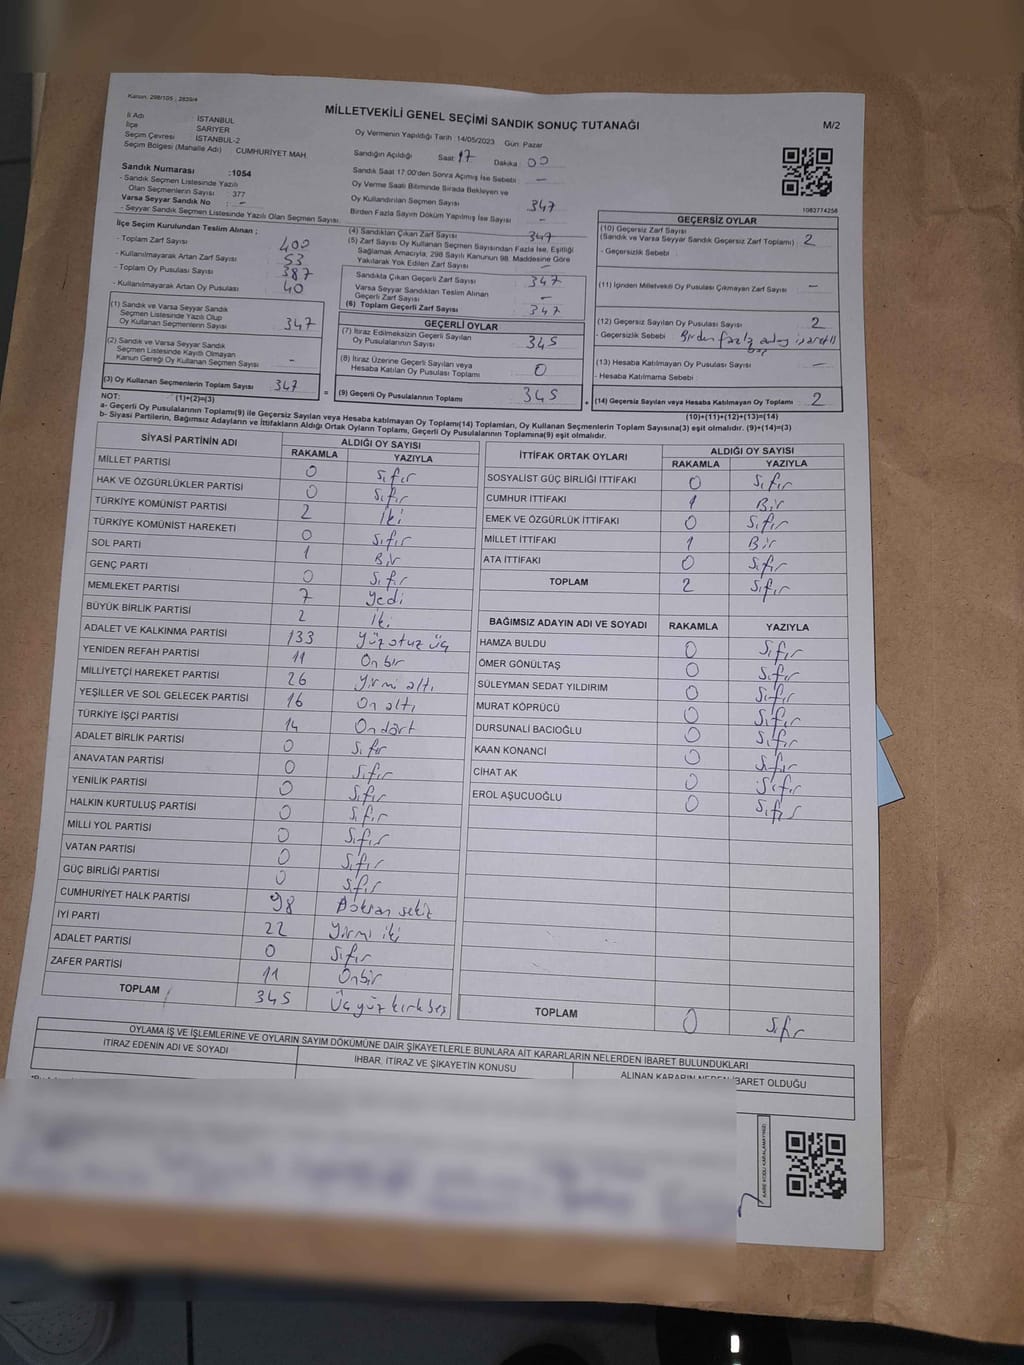 Kanun: 298/105 ; 2839/4
MİLLETVEKİLİ GENEL SEÇİMİ SANDIK SONUÇ TUTANAĞI
M/2
İl Adı : İSTANBUL
İlçe SARIYER
Seçim Çevresi İSTANBUL-2
Seçim Bölgesi (Mahalle Adı) CUMHURİYET MAH.
Sandık Numarası :1054
- Sandık Seçmen Listesinde Yazılı
Olan Seçmenlerin Sayısı : 377
Varsa Seyyar Sandık No : -
- Seyyar Sandık Seçmen Listesinde Yazılı Olan Seçmen Sayısı:
Oy Vermenin Yapıldığı Tarih :14/05/2023 Gün: Pazar
Sandığın Açıldığı Saat 17 Dakika: 00
Sandık Saat 17.00'den Sonra Açılmış İse Sebebi -
Oy Verme Saati Bitiminde Sırada Bekleyen ve
Oy Kullandırılan Seçmen Sayısı 347
Birden Fazla Sayım Döküm Yapılmış İse Sayısı -
1083774258
İlçe Seçim Kurulundan Teslim Alınan ;
- Toplam Zarf Sayısı 400
- Kullanılmayarak Artan Zarf Sayısı 53
- Toplam Oy Pusulası Sayısı 387
- Kullanılmayarak Artan Oy Pusulası 40
(1) Sandık ve Varsa Seyyar Sandık
Seçmen Listesinde Yazılı Olup
Oy Kullanan Seçmenlerin Sayısı 347
(2) Sandık ve Varsa Seyyar Sandık
Seçmen Listesinde Kayıtlı Olmayan
Kanun Gereği Oy Kullanan Seçmen Sayısı -
(3) Oy Kullanan Seçmenlerin Toplam Sayısı 347
(1)+(2)=(3)
(4) Sandıktan Çıkan Zarf Sayısı 347
(5) Zarf Sayısı Oy Kullanan Seçmen Sayısından Fazla İse, Eşitliği
Sağlamak Amacıyla, 298 Sayılı Kanunun 98. Maddesine Göre
Yakılarak Yok Edilen Zarf Sayısı -
Sandıkta Çıkan Geçerli Zarf Sayısı 347
Varsa Seyyar Sandıktan Teslim Alınan
Geçerli Zarf Sayısı -
(6) Toplam Geçerli Zarf Sayısı 347
GEÇERLİ OYLAR
(7) İtiraz Edilmeksizin Geçerli Sayılan
Oy Pusulalarının Sayısı 345
(8) İtiraz Üzerine Geçerli Sayılan veya
Hesaba Katılan Oy Pusulası Toplamı 0
= (9) Geçerli Oy Pusulalarının Toplamı 345
GEÇERSİZ OYLAR
(10) Geçersiz Zarf Sayısı
(Sandık ve Varsa Seyyar Sandık Geçersiz Zarf Toplamı) : 2
- Geçersiz Sebebi
(11) İçinden Milletvekili Oy Pusulası Çıkmayan Zarf Sayısı -
(12) Geçersiz Sayılan Oy Pusulası Sayısı 2
- Geçersizlik Sebebi Birden fazla aday işaretli
(13) Hesaba Katılmayan Oy Pusulası Sayısı -
- Hesaba Katılmama Sebebi
+ (14) Geçersiz Sayılan veya Hesaba Katılmayan Oy Toplamı : 2
(10)+(11)+(12)+(13)=(14)
NOT:
a- Geçerli Oy Pusulalarının Toplamı(9) ile Geçersiz Sayılan veya Hesaba katılmayan Oy Toplamı(14) Toplamları, Oy Kullanan Seçmenlerin Toplam Sayısına(3) eşit olmalıdır. (9)+(14)=(3)
b- Siyasi Partilerin, Bağımsız Adayların ve İttifakların Aldığı Ortak Oyların Toplamı, Geçerli Oy Pusulalarının Toplamına(9) eşit olmalıdır.
SİYASİ PARTİNİN ADI ALDIĞI OY SAYISI
RAKAMLA YAZIYLA
MİLLET PARTİSİ 0 Sıfır
HAK VE ÖZGÜRLÜKLER PARTİSİ 0 Sıfır
TÜRKİYE KOMÜNİST PARTİSİ 2 İki
TÜRKİYE KOMÜNİST HAREKETİ 0 Sıfır
SOL PARTİ 1 Bir
GENÇ PARTİ 0 Sıfır
MEMLEKET PARTİSİ 7 Yedi
BÜYÜK BİRLİK PARTİSİ 2 İki
ADALET VE KALKINMA PARTİSİ 133 Yüz otuz üç
YENİDEN REFAH PARTİSİ 11 Onbir
MİLLİYETÇİ HAREKET PARTİSİ 26 Yirmi altı
YEŞİLLER VE SOL GELECEK PARTİSİ 16 On altı
TÜRKİYE İŞÇİ PARTİSİ 14 Ondört
ADALET BİRLİK PARTİSİ 0 Sıfır
ANAVATAN PARTİSİ 0 Sıfır
YENİLİK PARTİSİ 0 Sıfır
HALKIN KURTULUŞ PARTİSİ 0 Sıfır
MİLLİ YOL PARTİSİ 0 Sıfır
VATAN PARTİSİ 0 Sıfır
GÜÇ BİRLİĞİ PARTİSİ 0 Sıfır
CUMHURİYET HALK PARTİSİ 98 Doksan sekiz
İYİ PARTİ 22 Yirmi iki
ADALET PARTİSİ 0 Sıfır
ZAFER PARTİSİ 11 Onbir
TOPLAM 345 Üç yüz kırk beş
İTTİFAK ORTAK OYLARI ALDIĞI OY SAYISI
RAKAMLA YAZIYLA
SOSYALİST GÜÇ BİRLİĞİ İTTİFAKI 0 Sıfır
CUMHUR İTTİFAKI 1 Bir
EMEK VE ÖZGÜRLÜK İTTİFAKI 0 Sıfır
MİLLET İTTİFAKI 1 Bir
ATA İTTİFAKI 0 Sıfır
TOPLAM 2 Sıfır
BAĞIMSIZ ADAYIN ADI VE SOYADI RAKAMLA YAZIYLA
HAMZA BULDU 0 Sıfır
ÖMER GÖNÜLTAŞ 0 Sıfır
SÜLEYMAN SEDAT YILDIRIM 0 Sıfır
MURAT KÖPRÜCÜ 0 Sıfır
DURSUNALİ BACIOĞLU 0 Sıfır
KAAN KONANCİ 0 Sıfır
CİHAT AK 0 Sıfır
EROL AŞUCUOĞLU 0 Sıfır
TOPLAM 0 Sıfır
OYLAMA İŞ VE İŞLEMLERİNE VE OYLARIN SAYIM DÖKÜMÜNE DAİR ŞİKAYETLERLE BUNLARA AİT KARARLARIN NELERDEN İBARET BULUNDUKLARI
İTİRAZ EDENİN ADI VE SOYADI
İHBAR, İTİRAZ VE ŞİKAYETİN KONUSU
ALINAN KARARIN NEDEN İBARET OLDUĞU
(KARE KODU KARALAMAYINIZ)